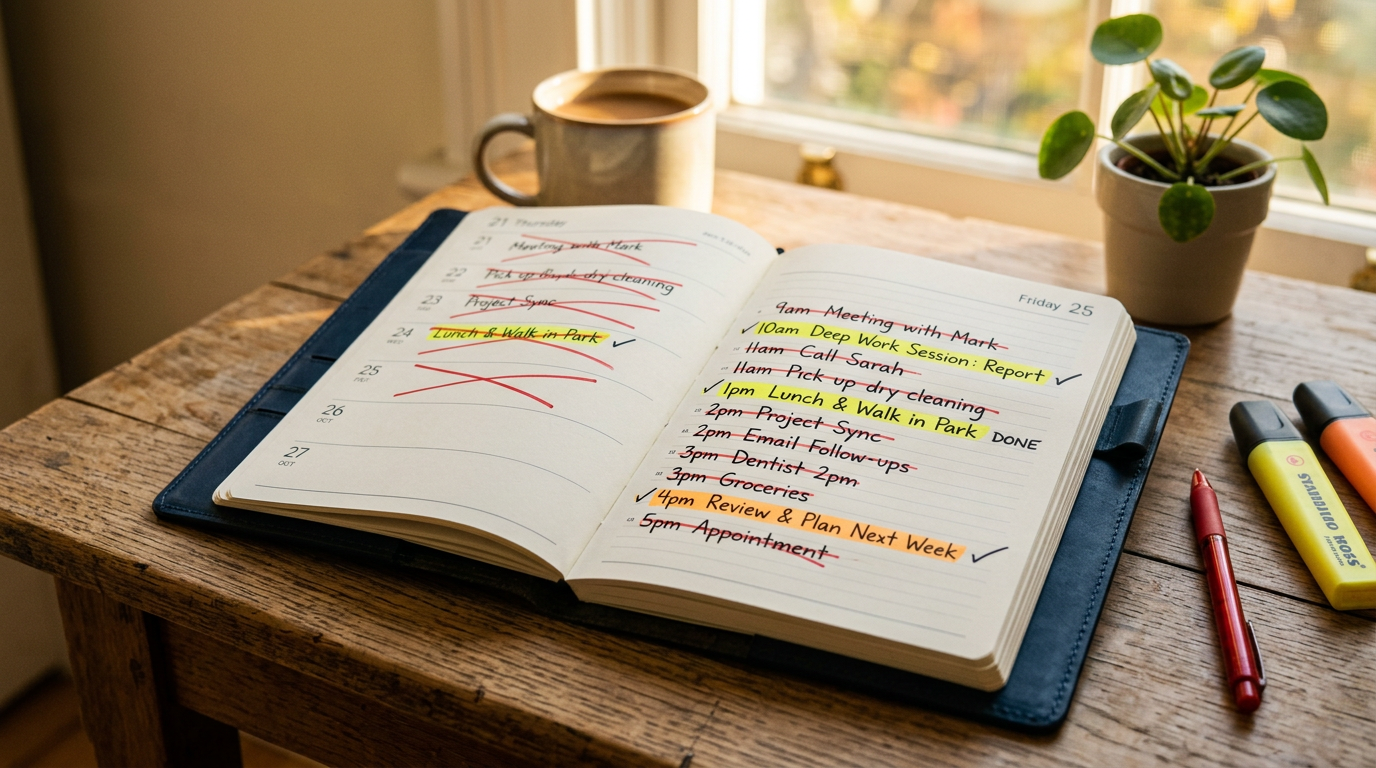 21 Thursday
21
Meeting with Mark
22
Pick up dry cleaning
23
Project Sync
24
WED
Lunch & Walk in Park ✓
25
26
OCT
27
OCT
Friday 25
9am Meeting with Mark
✓ 10am Deep Work Session: Report ✓
11am Call Sarah
11am Pick up dry cleaning
✓ 1pm Lunch & Walk in Park DONE
2pm Project Sync
2pm Email Follow-ups
3pm Dentist 2pm
3pm Groceries
✓ 4pm Review & Plan Next Week ✓
5pm Appointment